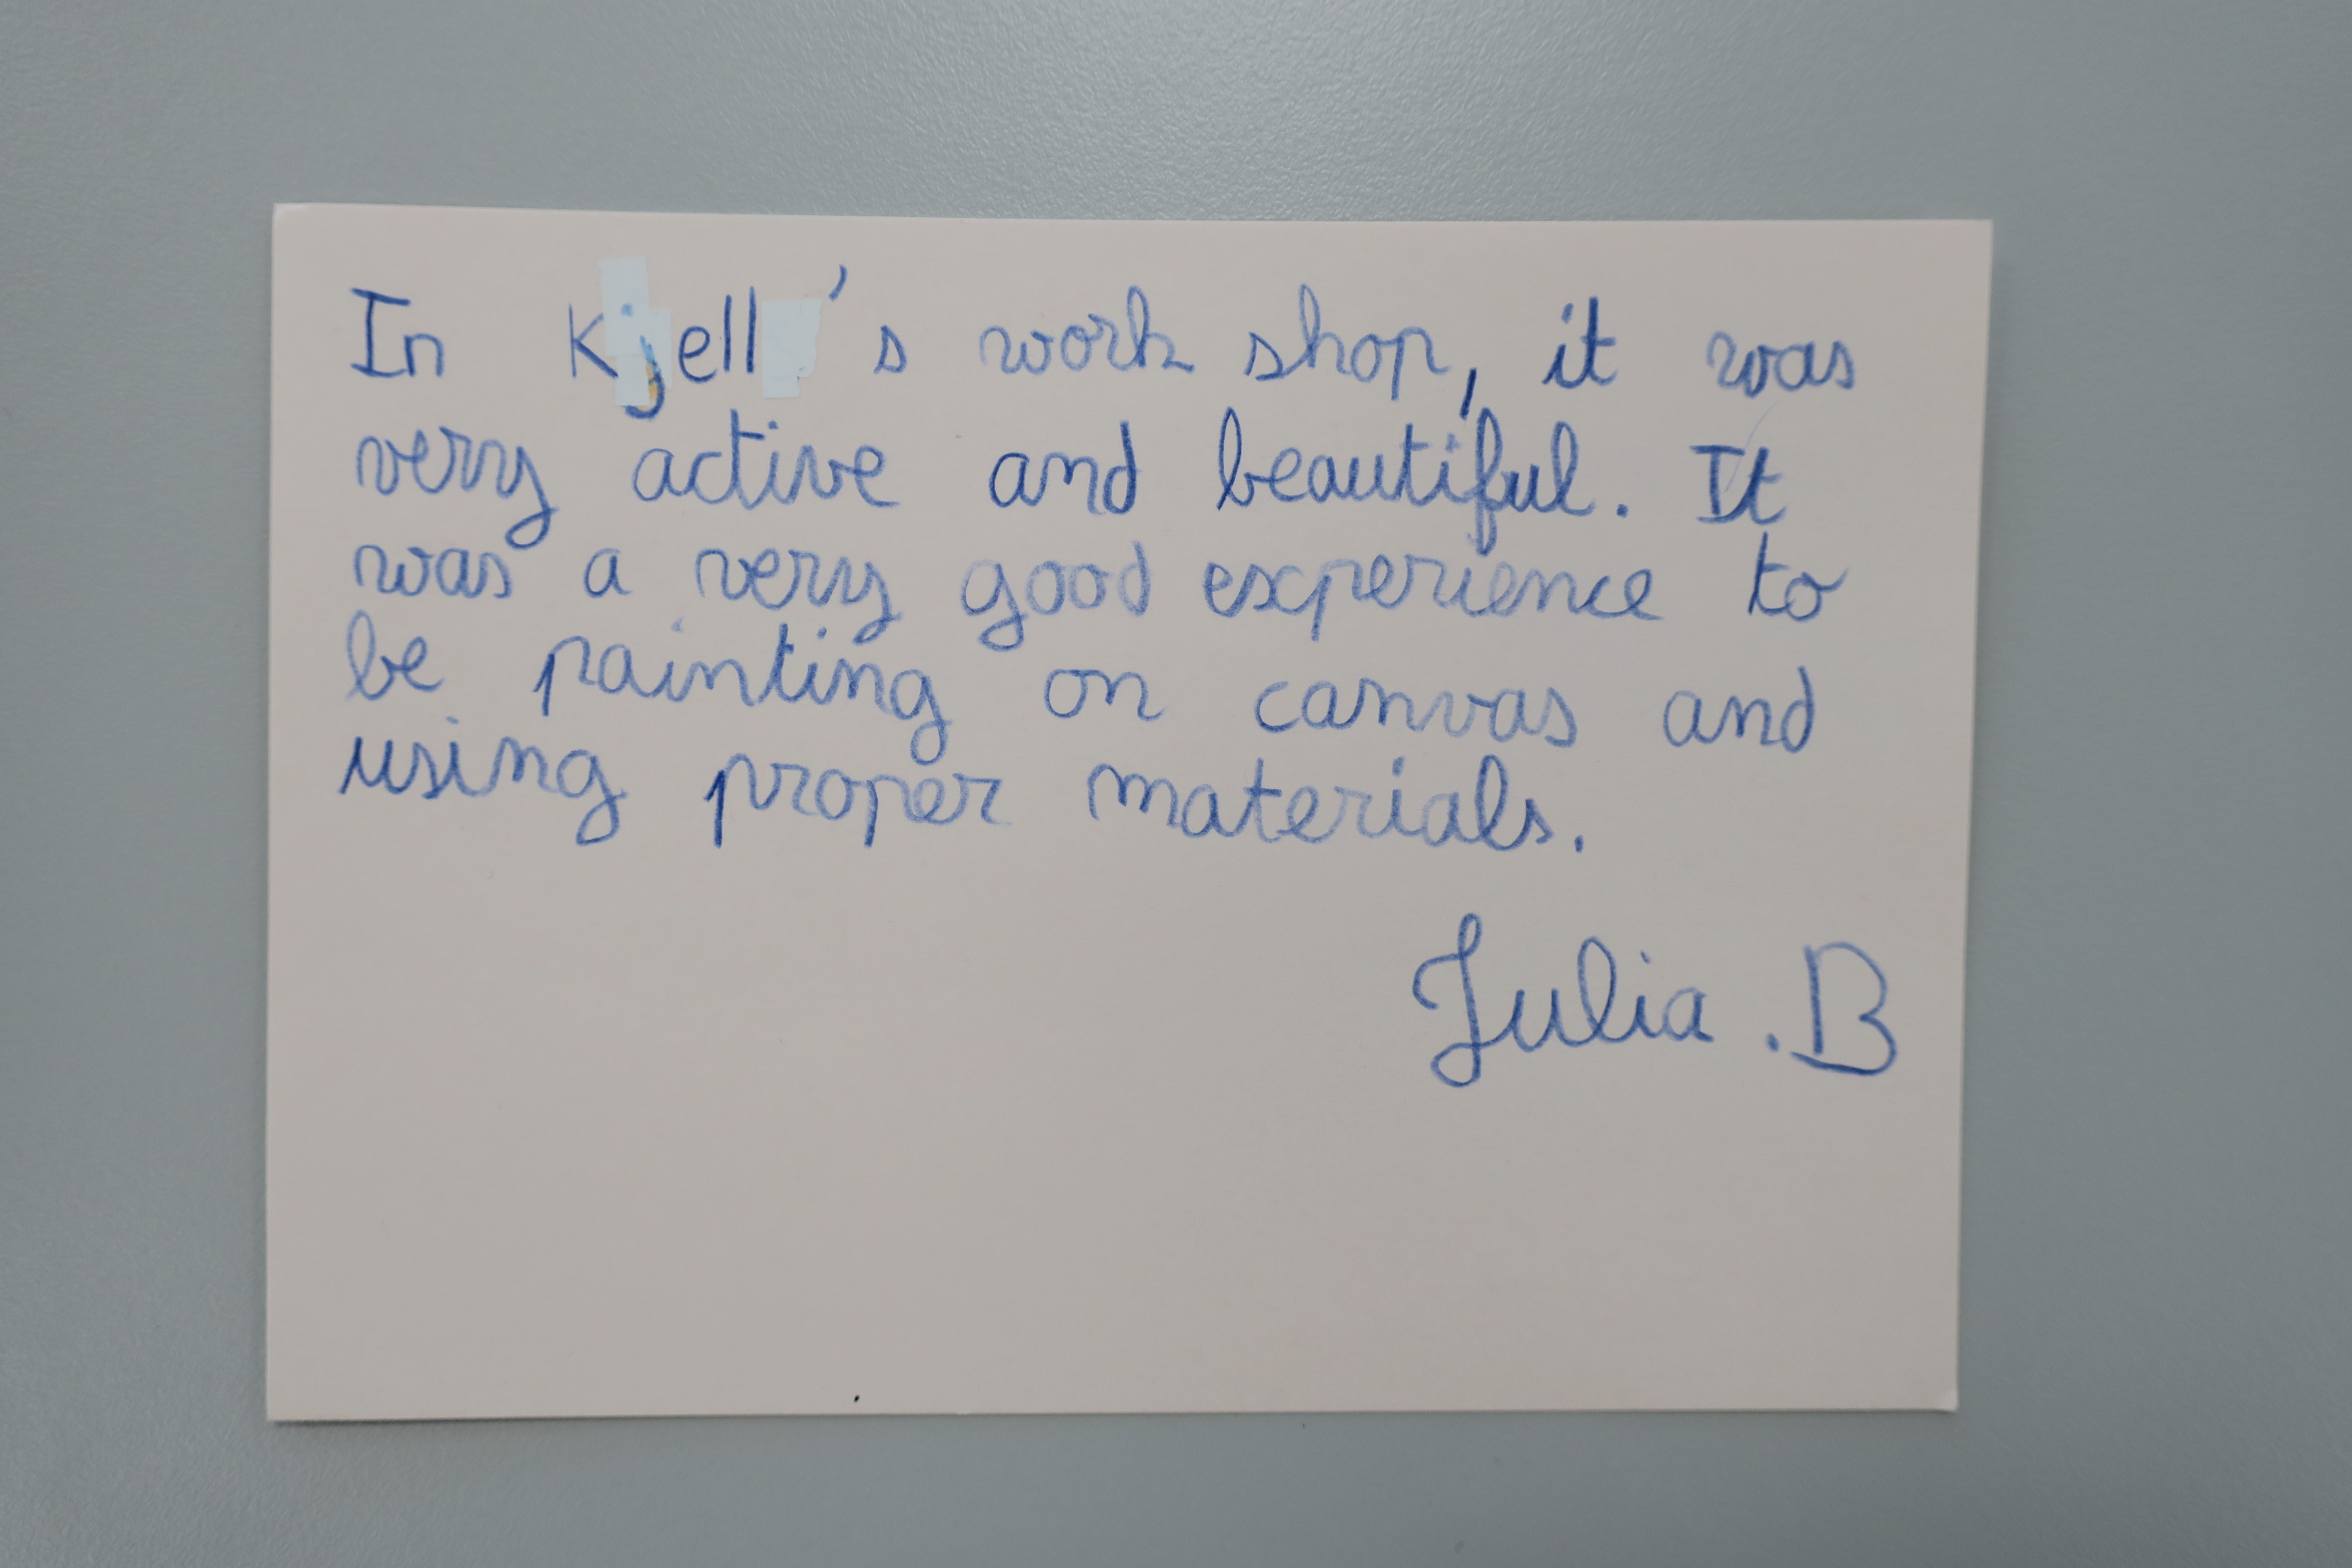 In Kjell's work shop, it was
very active and beautiful. It
was a very good experience to
be painting on canvas and
using proper materials.
Julia .B